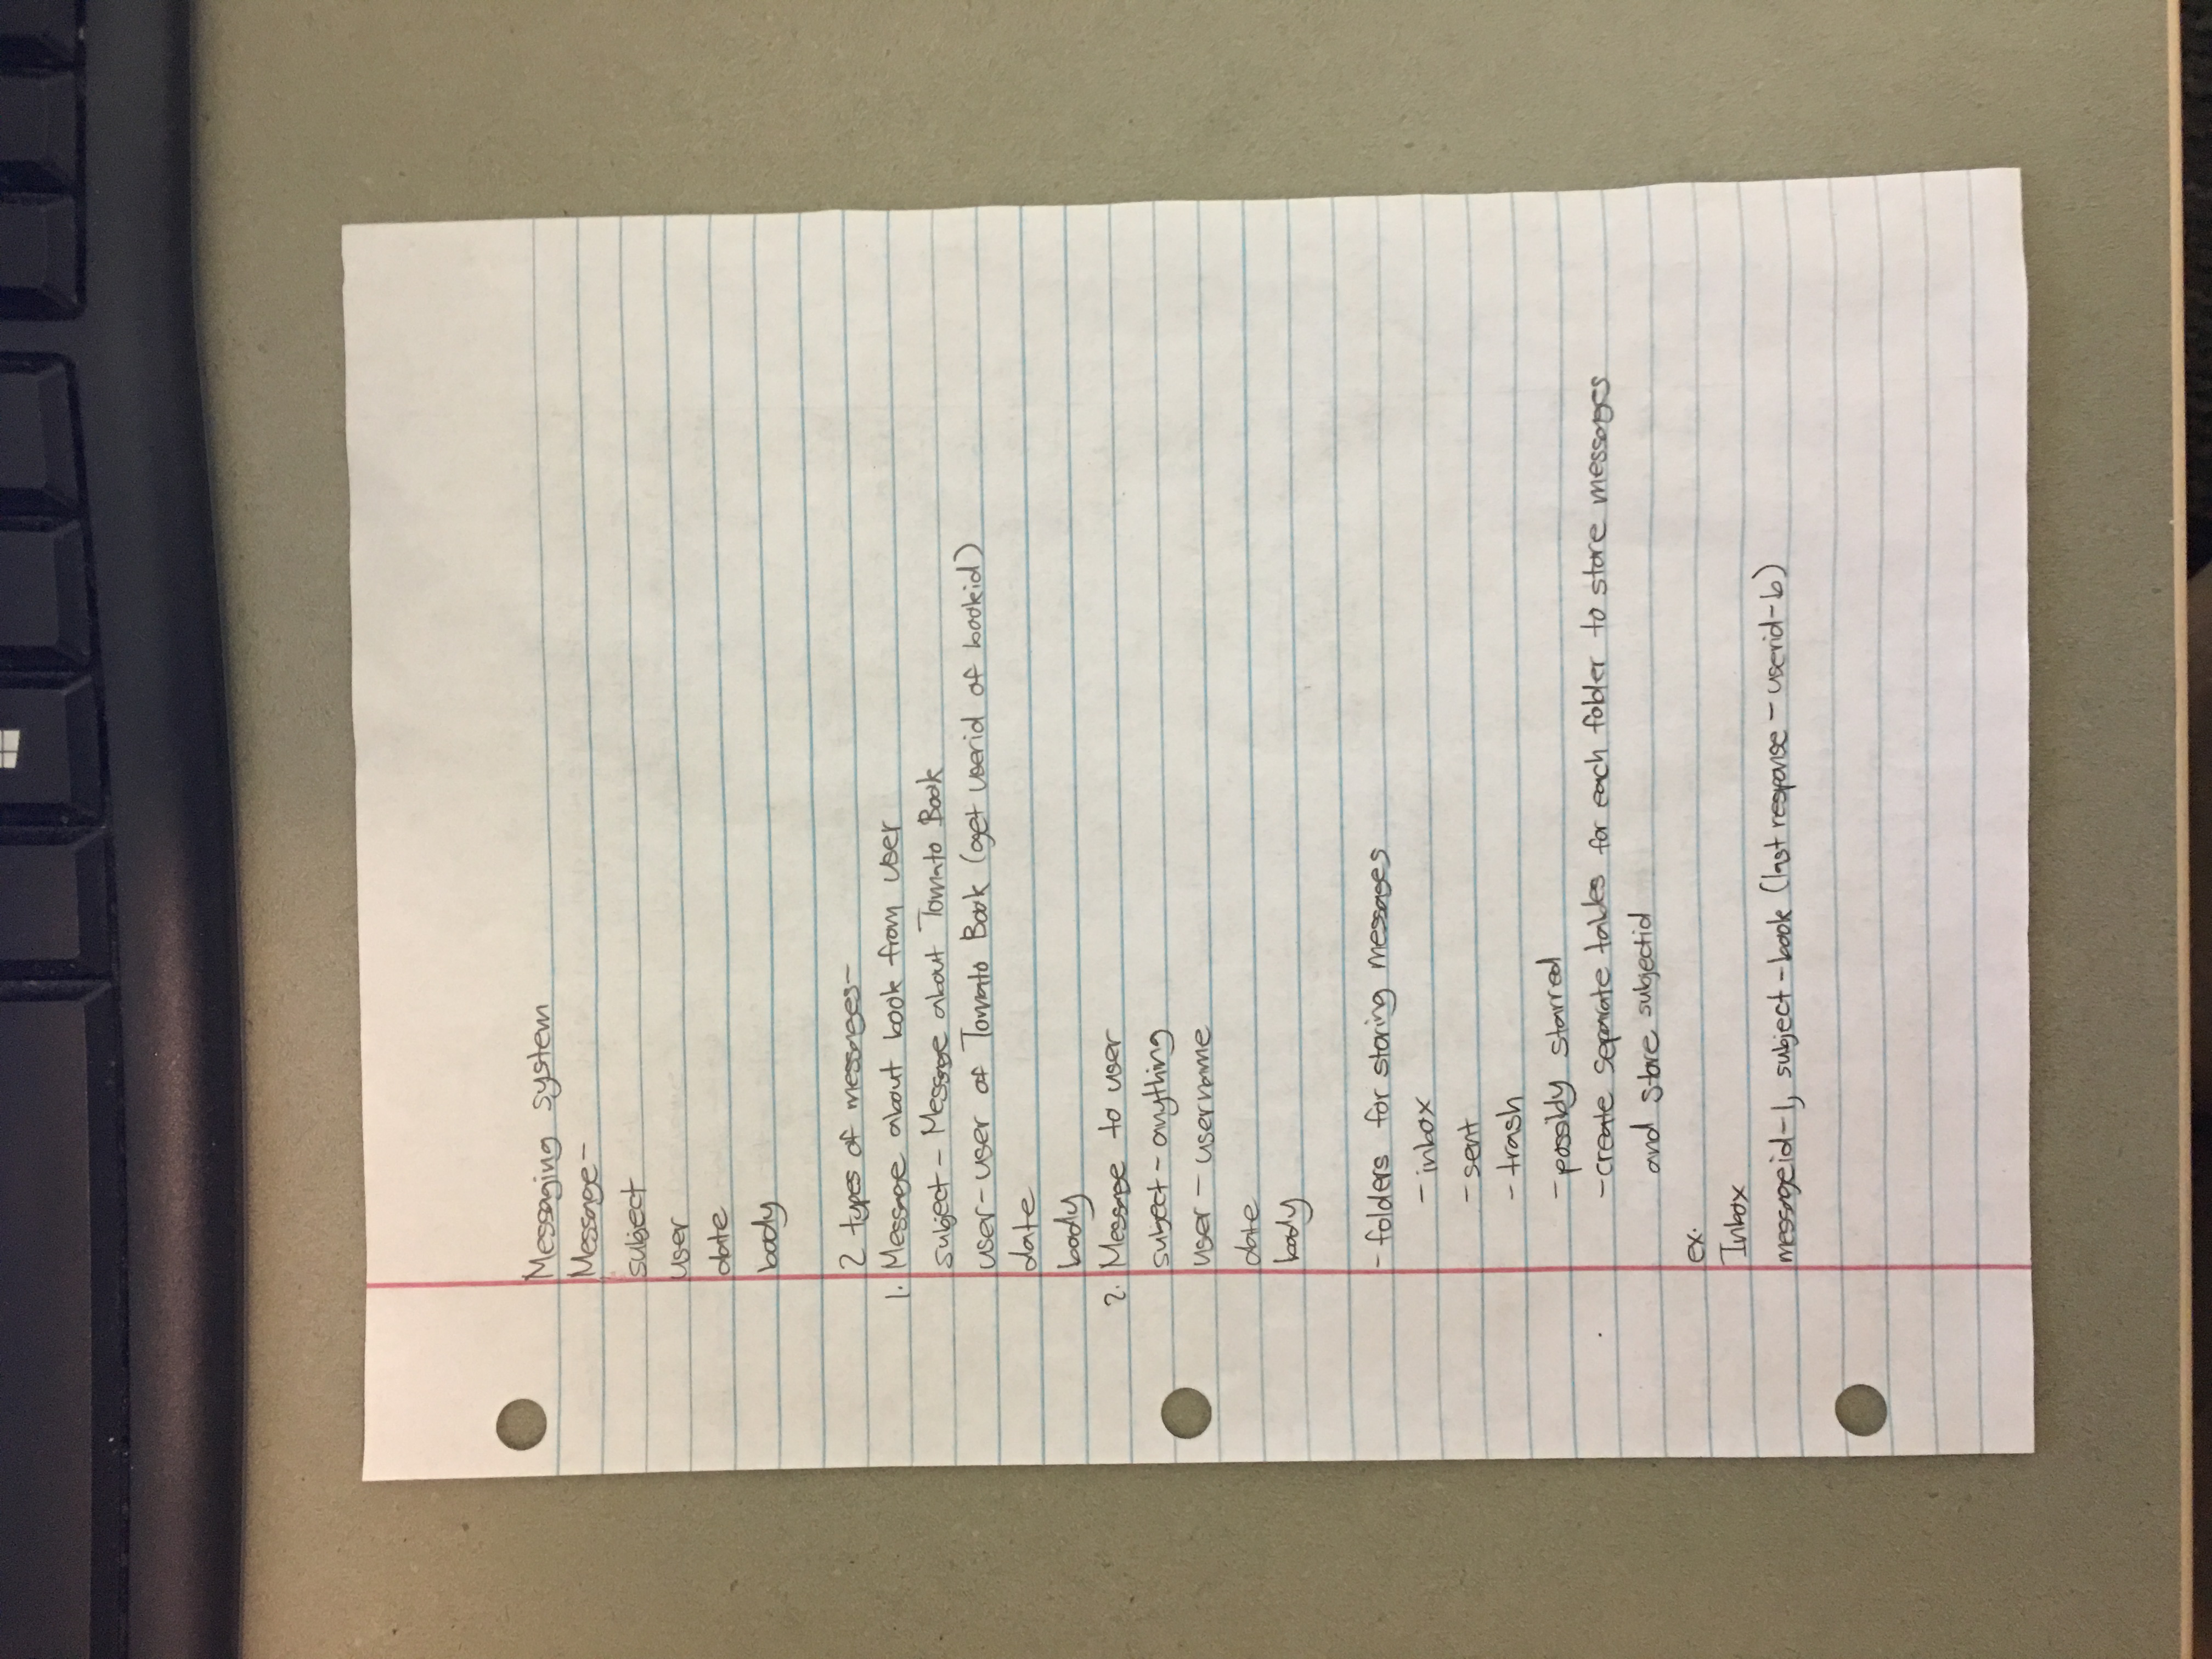 Messaging system
Message-
subject
user
date
body
2 types of messages-
1. Message about book from user
subject - Message about Tomato Book
user - user of Tomato Book (get userid of bookid)
date
body
2. Message to user
subject - anything
user - username
date
body
- folders for storing messages
- inbox
- sent
- trash
- possibly starred
- create separate tables for each folder to store messages
and store subjectid
ex.
Inbox
messageid-1, subject-book (last response - userid-b)